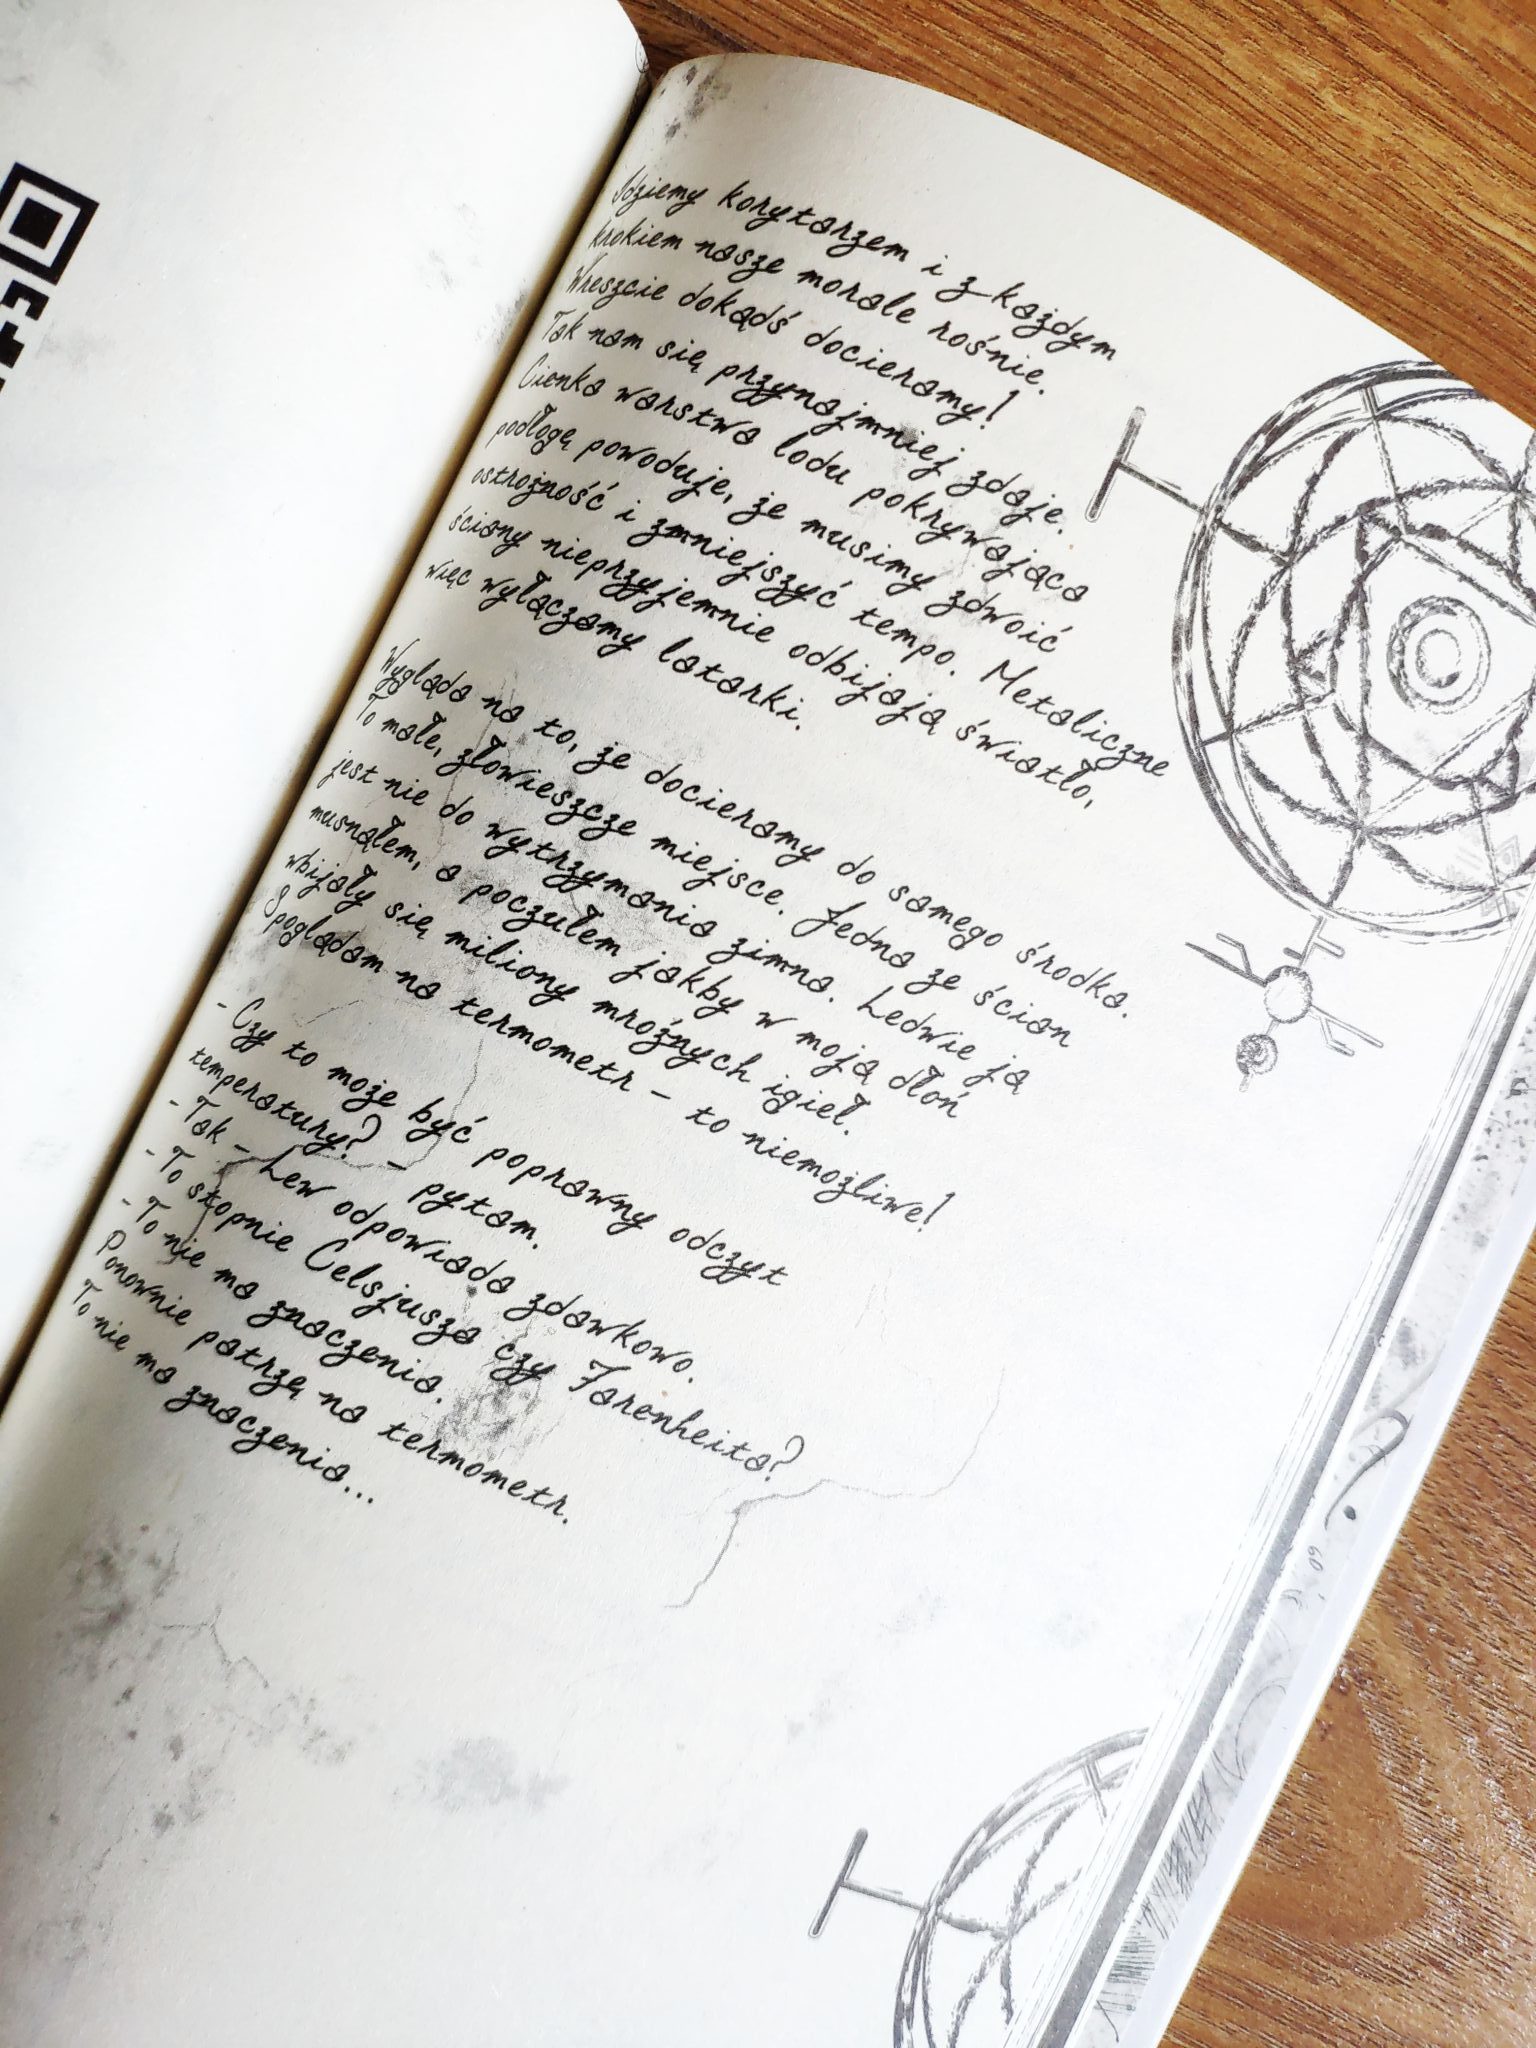 Idziemy korytarzem i z każdym
krokiem nasze morale rośnie.
Wreszcie dokądś docieramy!
Tak nam się przynajmniej zdaje.
Cienka warstwa lodu pokrywająca
podłogę powoduje, że musimy zdwoić
ostrożność i zmniejszyć tempo. Metaliczne
ściany nieprzyjemnie odbijają światło,
więc wyłączamy latarki.
Wygląda na to, że docieramy do samego środka.
To małe, złowieszcze miejsce. Jedna ze ścian
jest nie do wytrzymania zimna. Ledwie ją
musnąłem, a poczułem jakby w moją dłoń
wbijały się miliony mroźnych igieł.
Spoglądam na termometr - to niemożliwe!
- Czy to może być poprawny odczyt
temperatury? - pytam.
- Tak - Lew odpowiada zdawkowo.
- To stopnie Celsjusza czy Farenheita?
- To nie ma znaczenia.
Ponownie patrzę na termometr.
To nie ma znaczenia...